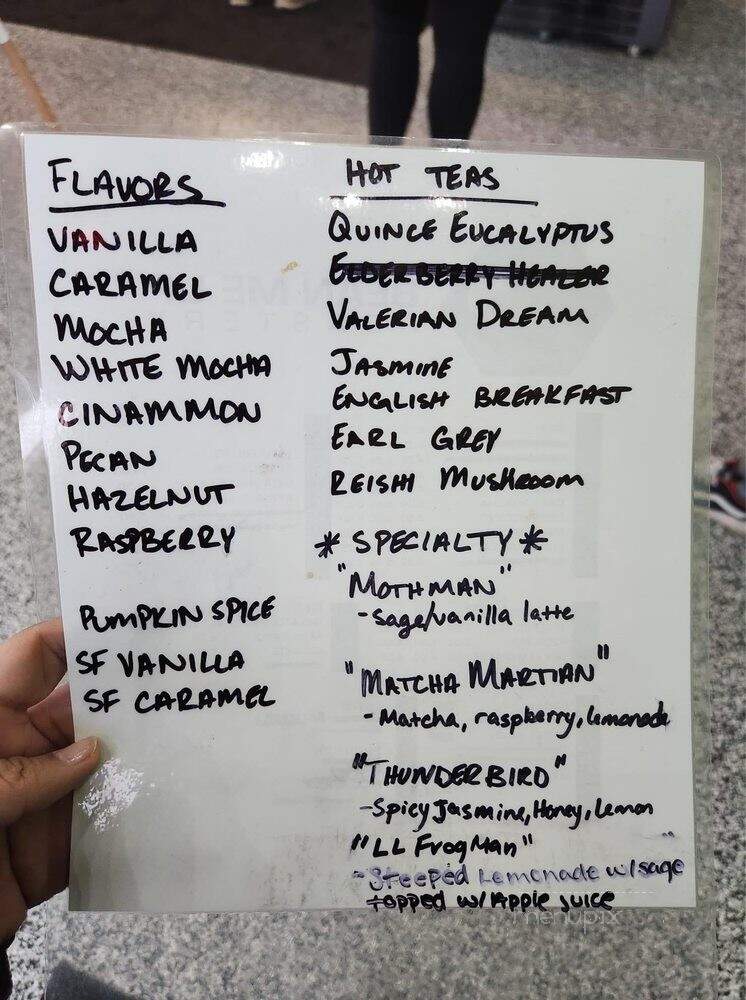 FLAVORS
VANILLA
CARAMEL
MOCHA
WHITE MOCHA
CINAMMON
PECAN
HAZELNUT
RASPBERRY
PUMPKIN SPICE
SF VANILLA
SF CARAMEL
HOT TEAS
QUINCE EUCALYPTUS
ELDERBERRY HEALER
VALERIAN DREAM
JASMINE
ENGLISH BREAKFAST
EARL GREY
REISHI MUSHROOM
* SPECIALTY *
"MOTHMAN"
- Sage/vanilla latte
"MATCHA MARTIAN"
- Matcha, raspberry, lemonade
"THUNDERBIRD"
- Spicy Jasmine, Honey, Lemon
"LL FrogMan"
- Steeped Lemonade w/sage
topped w/ Apple Juice
menupix